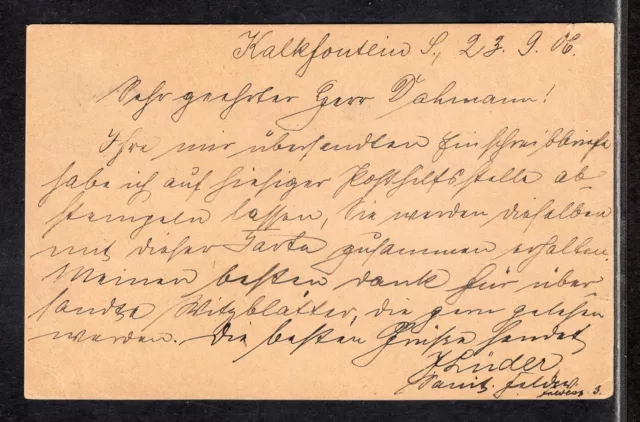 Kalkfontein S., 23. 9. 06.
Sehr geehrter Herr Dahmann!
Ihre mir übersandten Einschreibbriefe
habe ich auf hiesiger Posthilfsstelle ab-
stempeln lassen, Sie werden dieselben
mit dieser Karte zusammen erhalten.
Meinen besten Dank für über-
sandte Witzblätter, die gern gelesen
werden. Die besten Grüße sendet
Lüder
Sanit. Feldw.